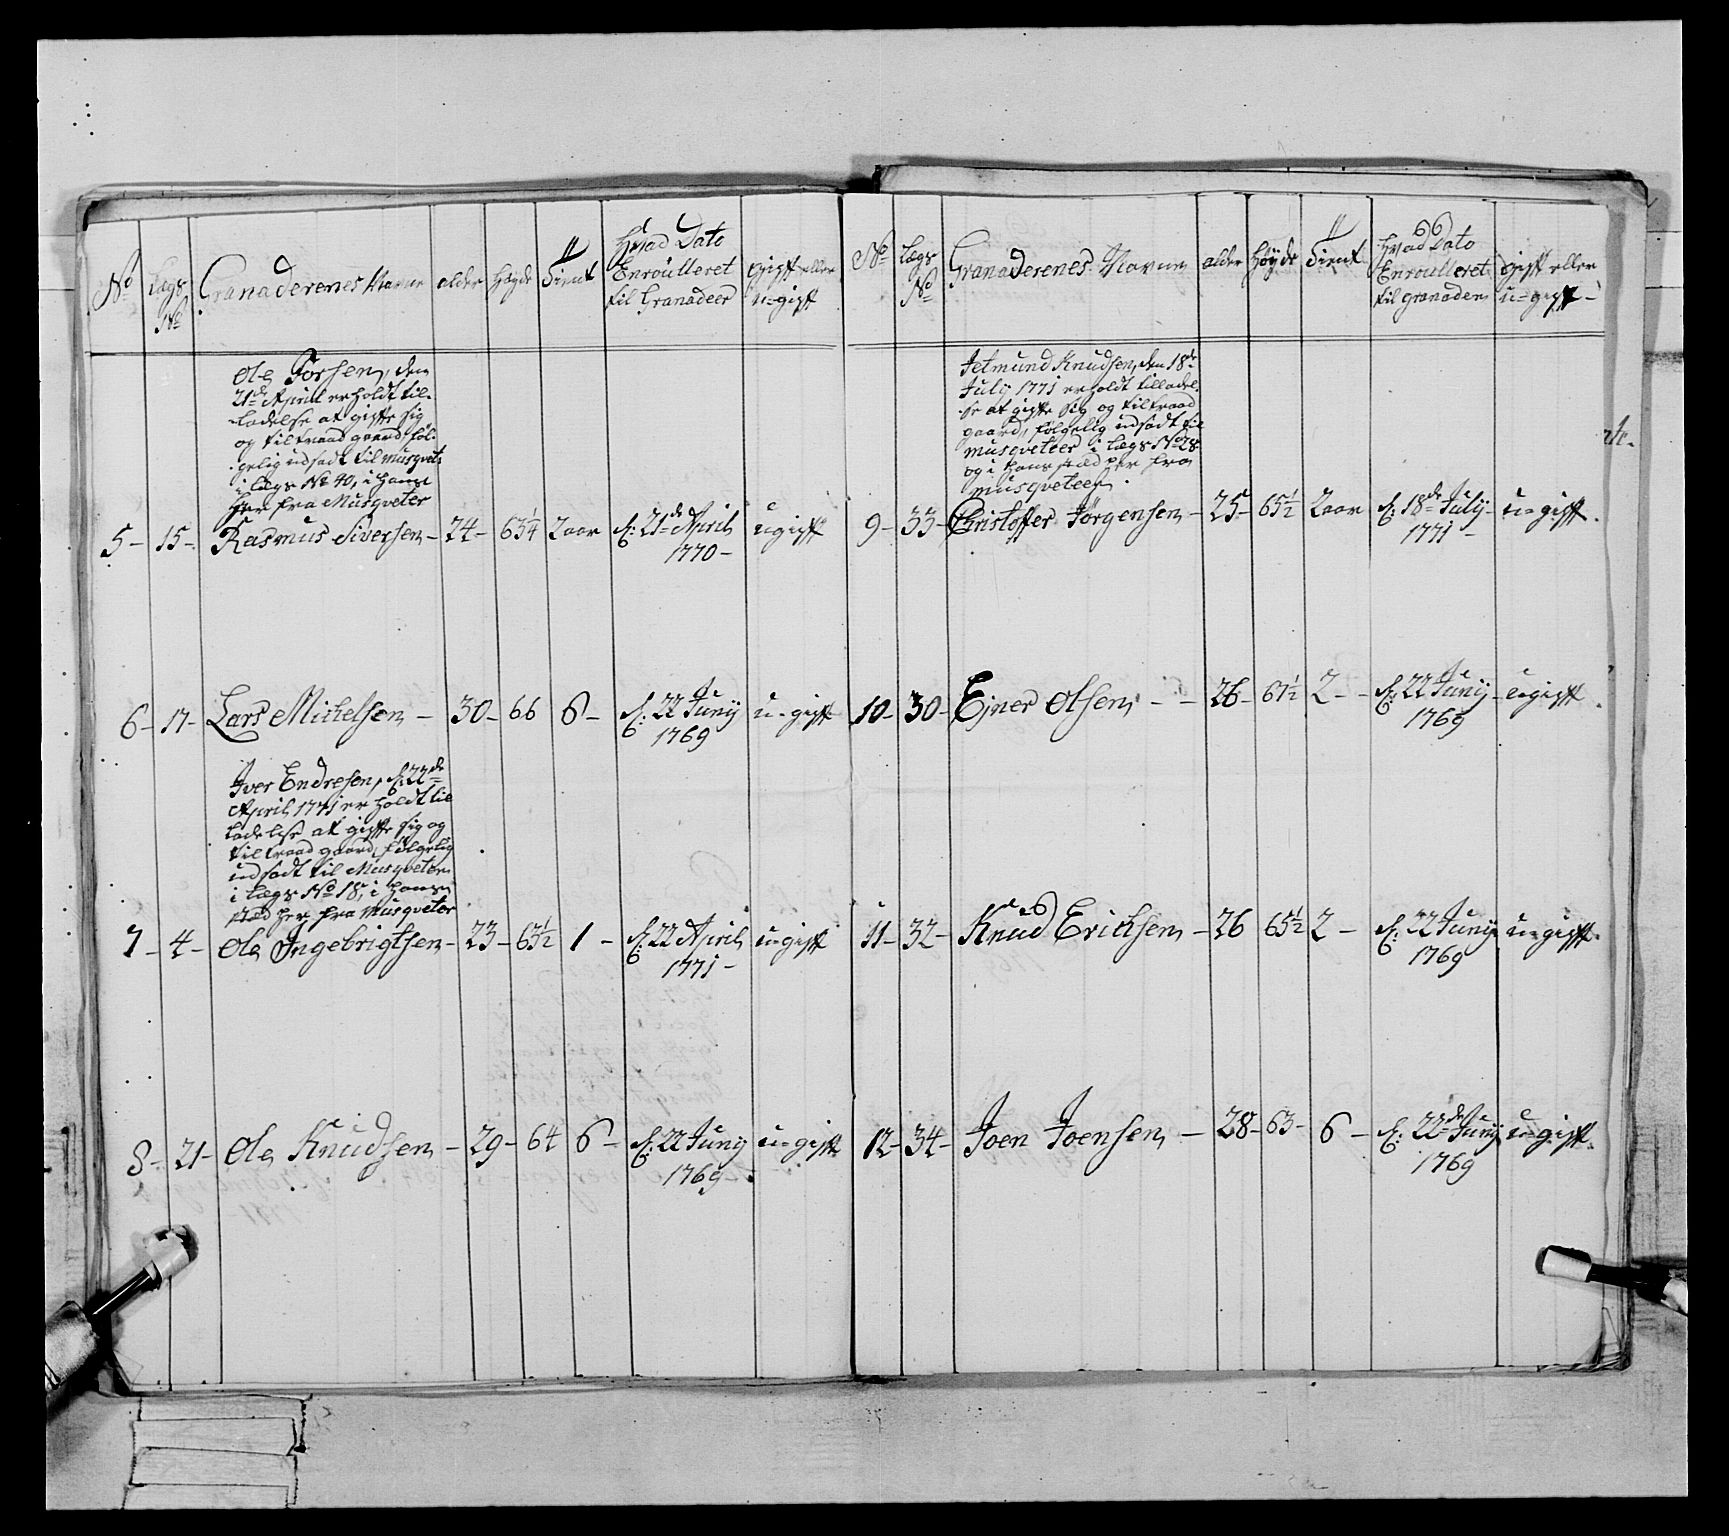 No
Lægs No
Granaderenes Navne
alder
Høyde
Tient
Hvad Dato
Enroulleret
til Granadeer
gift eller
u-gift
Ole Torsen, den
21de April erholdt til-
ladelse at gifte sig
og tiltraad gaard, føl-
gelig udsadt til musqvet:
i Lægs No 40, i hans
her fra Musqveter
5 - 15 - Rasmus Siversen - 24 - 63¼ 2 aar d: 21de April ugift
1770 -
6 - 17 - Lars Mickelsen - 30 - 66 6 - d: 22 Juny u-gift
1769
Iver Endresen, d: 22de
April 1771 erholdt til
ladelse at gifte sig og
tiltraad gaard, følgelig
udsadt til Musqveteer
i Lægs No 18, i hans
stæd her fra Musqveter
7 - 4 - Ole Ingebrigtsen - 23 - 63½ 1 - d: 22 April u-gift
1771 -
8 - 21 - Ole Knudsen - 29 - 64 6 - d: 22 Juny u-gift
1769 -
No
Lægs
No
Granaderenes Navne
alder
Høyde
Tient
Hvad Dato
Enroulleret
til granadeer
gift eller
u-gift -
Jetmund Knudsen, den 18de
July 1771 erholdt tilladel-
se at gifte sig og tiltraad
gaard, følgelig udsadt til
musqveteer i Lægs No 28
og i hans stæd her fra
musqveteer.
9 - 33 - Christoffer Jørgensen - 25 - 65½ 2 aar d: 18de July - u-gift.
1771 -
10 - 30 - Ejner Olsen - - 26 - 67½ 2 - - d: 22 Juny - u-gift
1769
11 - 32 - Knud Ericksen - 26 65½ 2 - d: 22 Juny u-gift.
1769
12 - 34 - Joen Joensen - 28 - 63 - 6 - d: 22de Juny u-gift.
1769